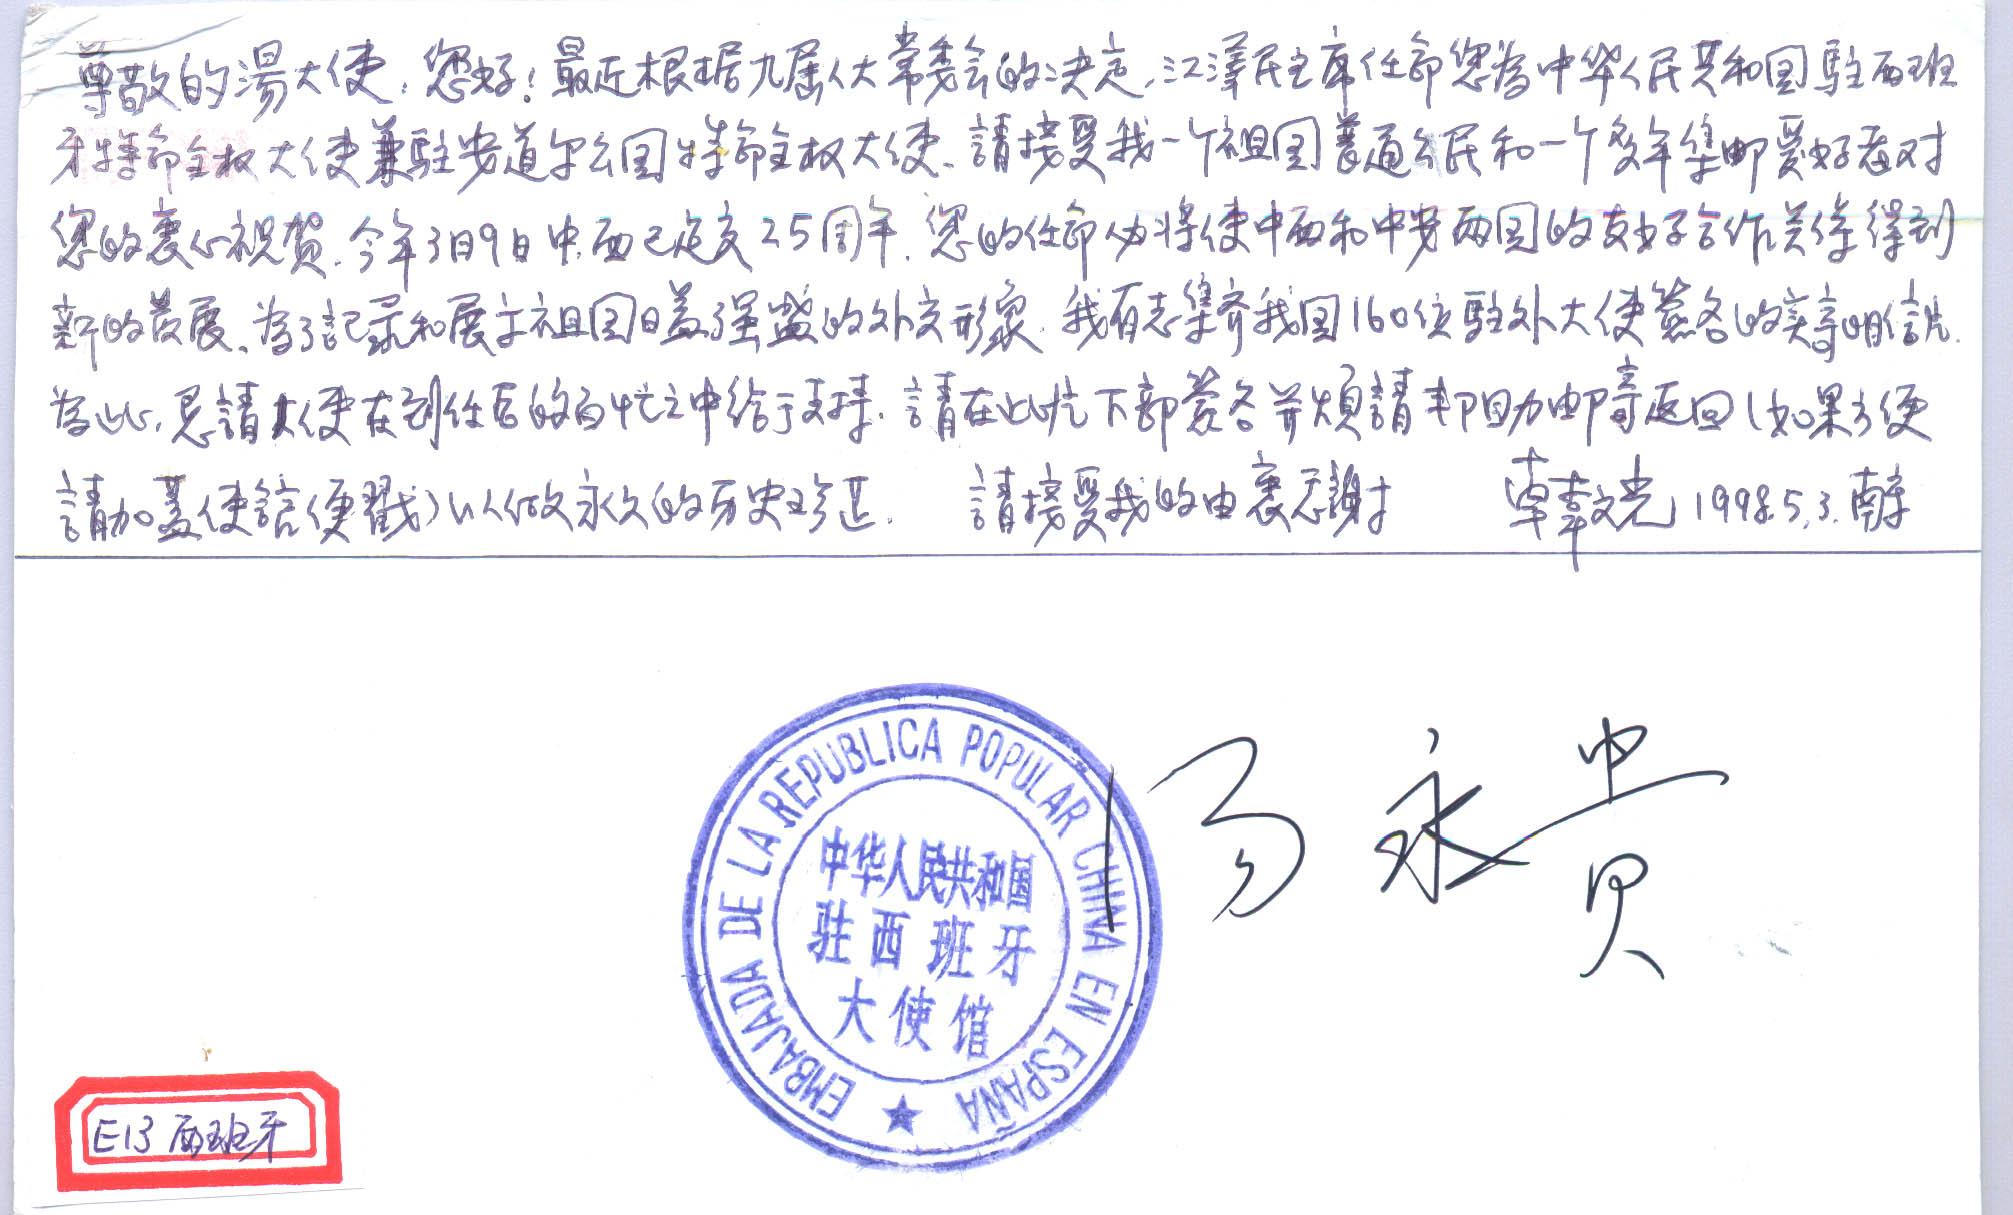 尊敬的湯大使，您好！最近根据九届人大常委会的决定，江澤民主席任命您為中华人民共和国駐西班
牙特命全权大使兼駐安道尔公国特命全权大使、請接受我一个祖国普通公民和一个多年集邮爱好者对
您的衷心祝贺．今年3月9日中,西已建交25周年．您的任命必将使中西和中安两国的友好合作关係得到
新的發展、為了記录和展示祖国日益强盛的外交形象．我有志集齐我国160位駐外大使簽名的實寄明信片．
為此，恳請大使在到任后的百忙之中给于支持．請在此片下部簽名并煩請帮助邮寄返回(如果方便
請加蓋使館便戳)以做永久的历史珍芷． 請接受我的由衷感謝 韋文光 1998.5.3.南京
EMBAJADA DE LA REPUBLICA POPULAR CHINA EN ESPAÑA
中华人民共和国
驻西班牙
大使馆
汤永贵
E13 西班牙